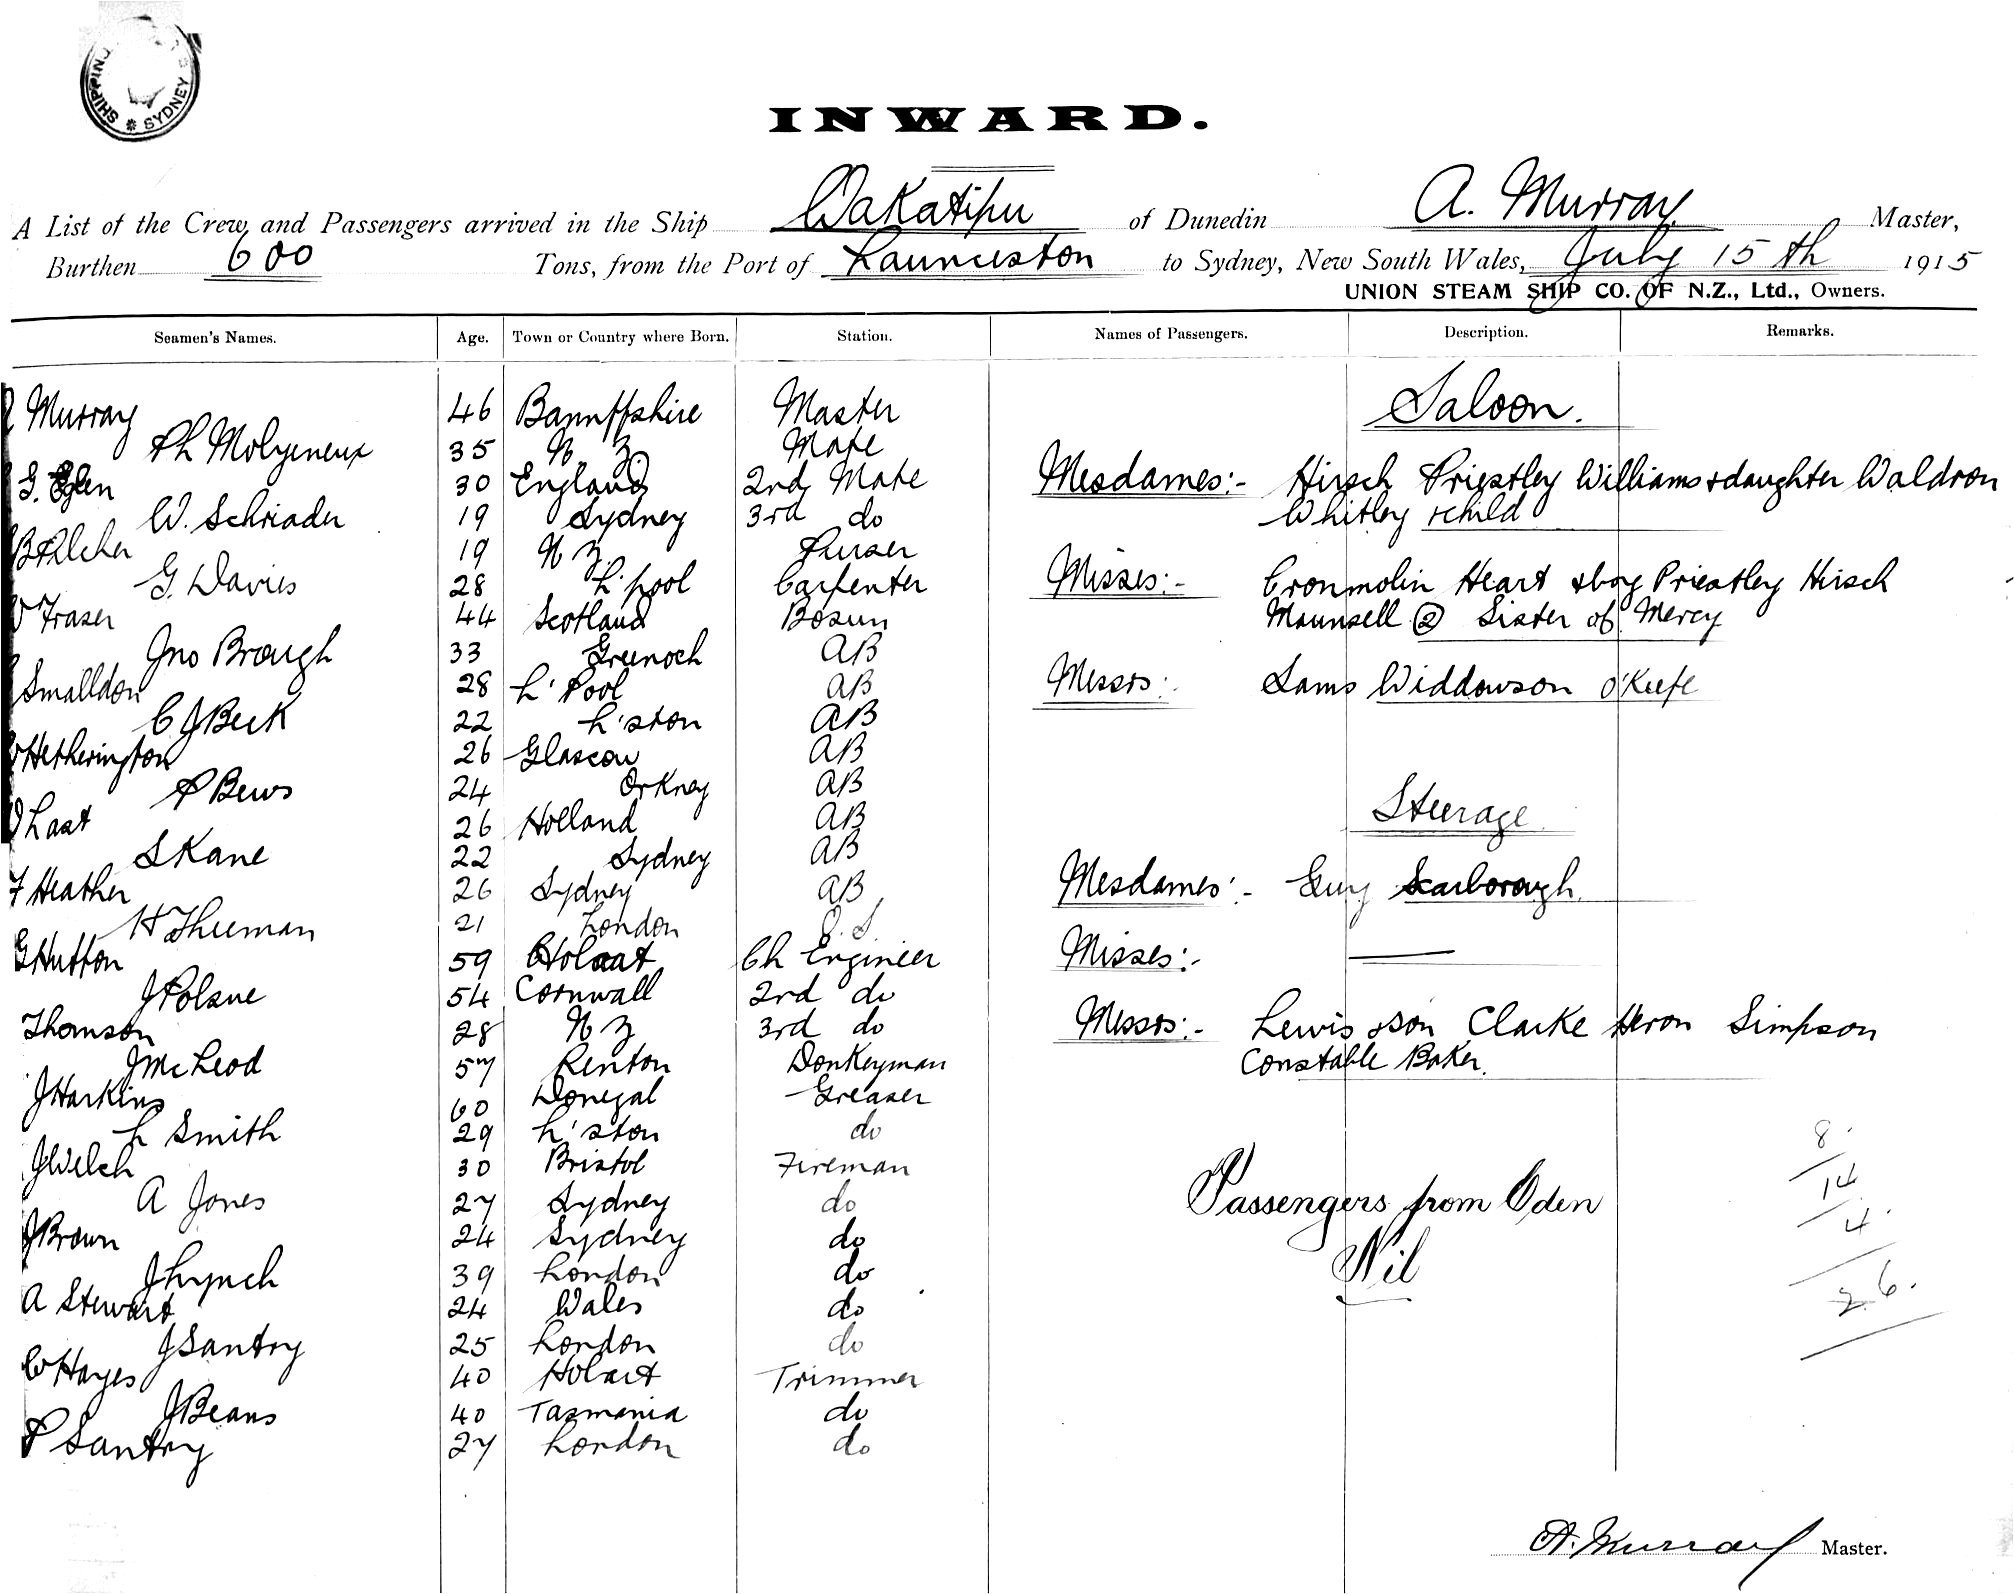 SHIPPING
* SYDNEY *
INWARD.
A List of the Crew and Passengers arrived in the Ship Wakatipu of Dunedin A. Murray Master,
Burthen 600 Tons, from the Port of Launceston to Sydney, New South Wales, July 15th 1915
UNION STEAM SHIP CO. OF N.Z., Ltd., Owners.
Seamen's Names. Age. Town or Country where Born. Station. Names of Passengers. Description. Remarks.
Murray 46 Bannffshire Master
Ph Molyeneux 35 N Z Mate
30 England 2nd Mate
W. Schriader 19 Sydney 3rd do
B Pilcher 19 N Z Purser
G. Davies 28 L'pool Carpenter
Fraser 44 Scotland Bosun
Jno Brough 33 Greenoch AB
Smalldon 28 L'Pool AB
C J Beck 22 L'ston AB
Hetherington 26 Glascow AB
P Bews 24 Orkney AB
Last 26 Holland AB
S Kane 22 Sydney AB
F Heather 26 Sydney AB
H Thieman 21 London O.S.
G Hutton 59 Hobart Ch Engineer
J Polsue 54 Cornwall 2nd do
Thomson 28 N Z 3rd do
J McLeod 57 Renton Donkeyman
J Harkins 60 Donegal Greaser
L Smith 29 L'ston do
J Welch 30 Bristol Fireman
A Jones 27 Sydney do
J Brown 24 Sydney do
J Lynch 39 London do
A Stewart 24 Wales do
J Santry 25 London do
W Hayes 40 Hobart Trimmer
J Beans 40 Tasmania do
P Santry 27 London do
Saloon.
Mesdames:- Hirsch Priestley Williams & daughter Waldron
Whitley & child
Misses:- Cronmolin Heart & boy Priestley Hirsch
Maunsell ② Sister of Mercy
Messrs:- Sams Widdowson O'Keefe
Steerage
Mesdames:- Guy Scarborough
Misses:- —
Messrs:- Lewis & son Clarke Heron Simpson
Constable Baker.
Passengers from Eden
Nil
8
14
4
26.
A. Murray Master.